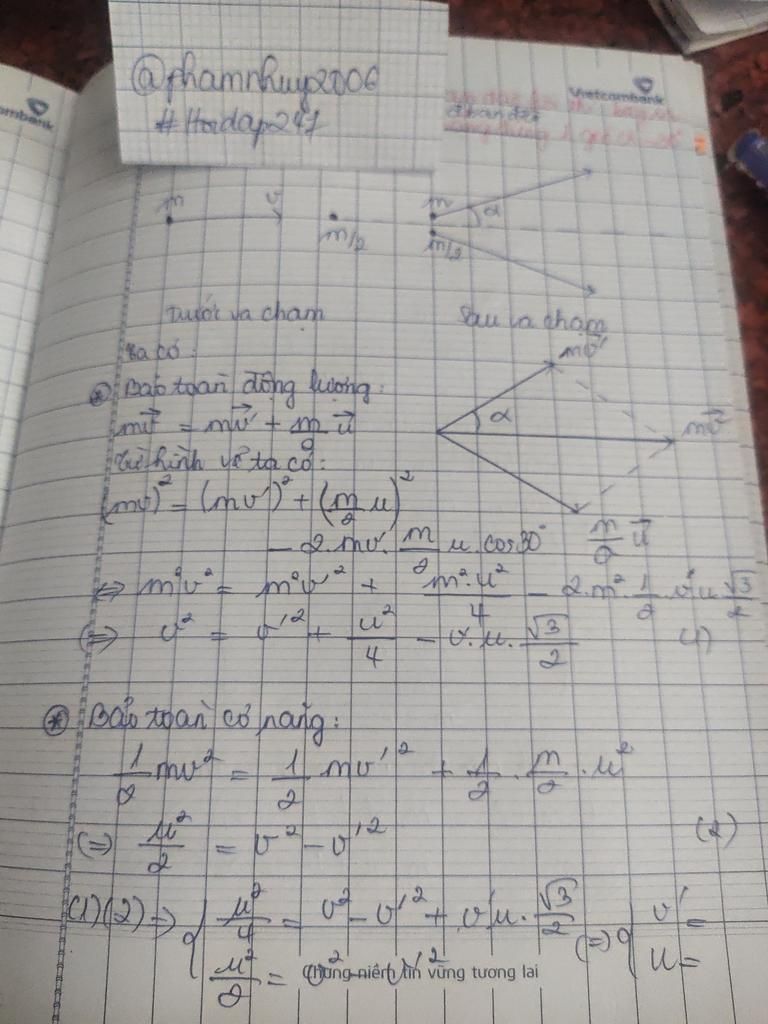 @phamnhuy2006
#Hoidap247
Vietcombank
m v m/2 m α m/2
Trước va chạm Sau va chạm
Ta có:
mv'
⊛ Bảo toàn động lượng:
α
mv⃗ = mv⃗' + m/2 u⃗
mv⃗
Từ hình vẽ ta có:
(mv)² = (mv')² + (m/2 u)²
- 2.mv'. m/2 u.cos30°
m/2 u⃗
⇔ m²v² = m²v'² + m².u²/4 - 2.m².1/2 v'u √3/2
⇔ v² = v'² + u²/4 - v'.u.√3/2 (1)
⊛ Bảo toàn cơ năng:
1/2 mv² = 1/2 mv'² + 1/2 . m/2 . u²
⇔ u²/2 = v² - v'² (2)
(1)(2) ⇒ { u²/4 = v² - v'² + v'u.√3/2
u²/2 = v² - v'²
⇔ { v' =
u =
Chung niềm tin vững tương lai